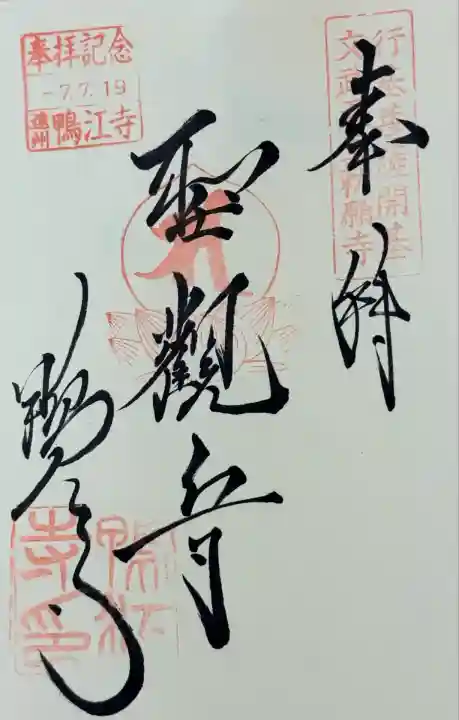 行基菩薩開基
文武天皇勅願寺
奉拝
聖觀音
鴨江寺
奉拝記念
-7.7.19
遠州 鴨江寺
鴨江
寺印